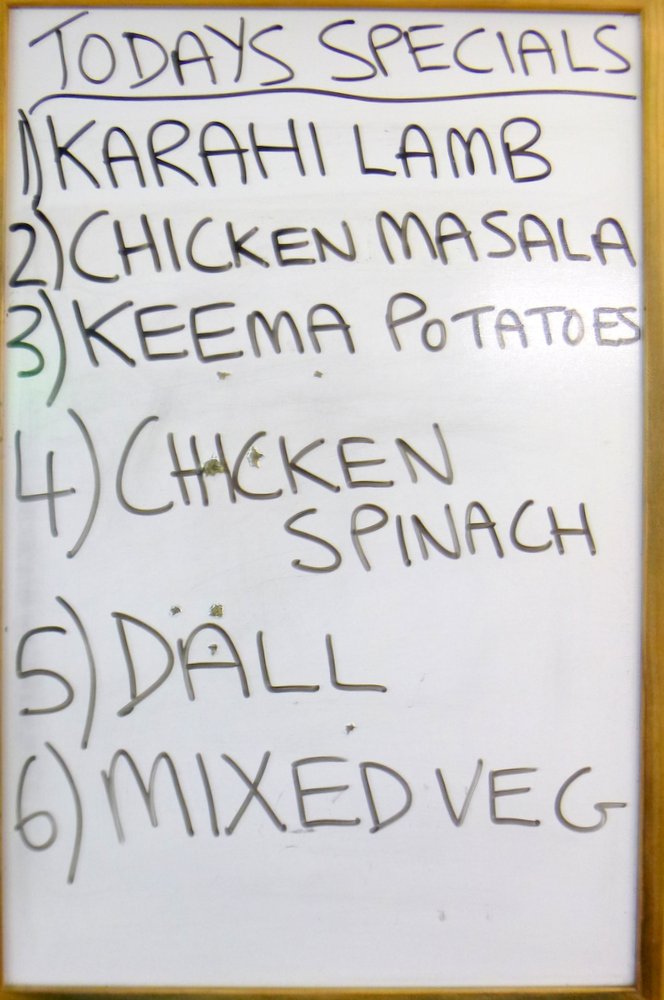 TODAYS SPECIALS
1) KARAHI LAMB
2) CHICKEN MASALA
3) KEEMA POTATOES
4) CHICKEN
SPINACH
5) DALL
6) MIXED VEG